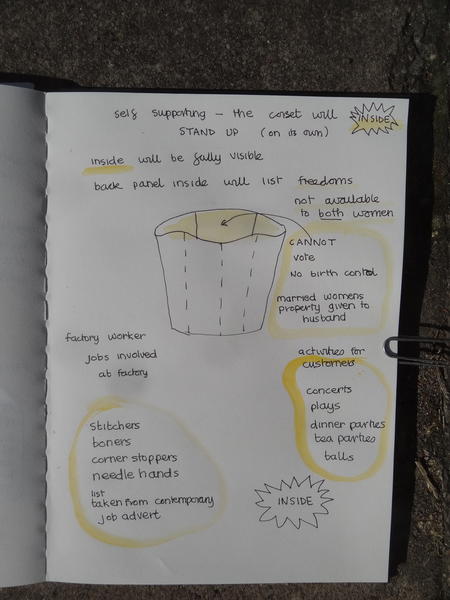 self supporting – the corset will
STAND UP (on its own)
INSIDE
inside will be fully visible
back panel inside will list freedoms
not available
to both women
CANNOT
vote
No birth control
married womens
property given to
husband
factory worker
jobs involved
at factory
activities for
customers
concerts
plays
dinner parties
tea parties
balls
stitchers
boners
corner stoppers
needle hands
list
taken from contemporary
job advert
INSIDE